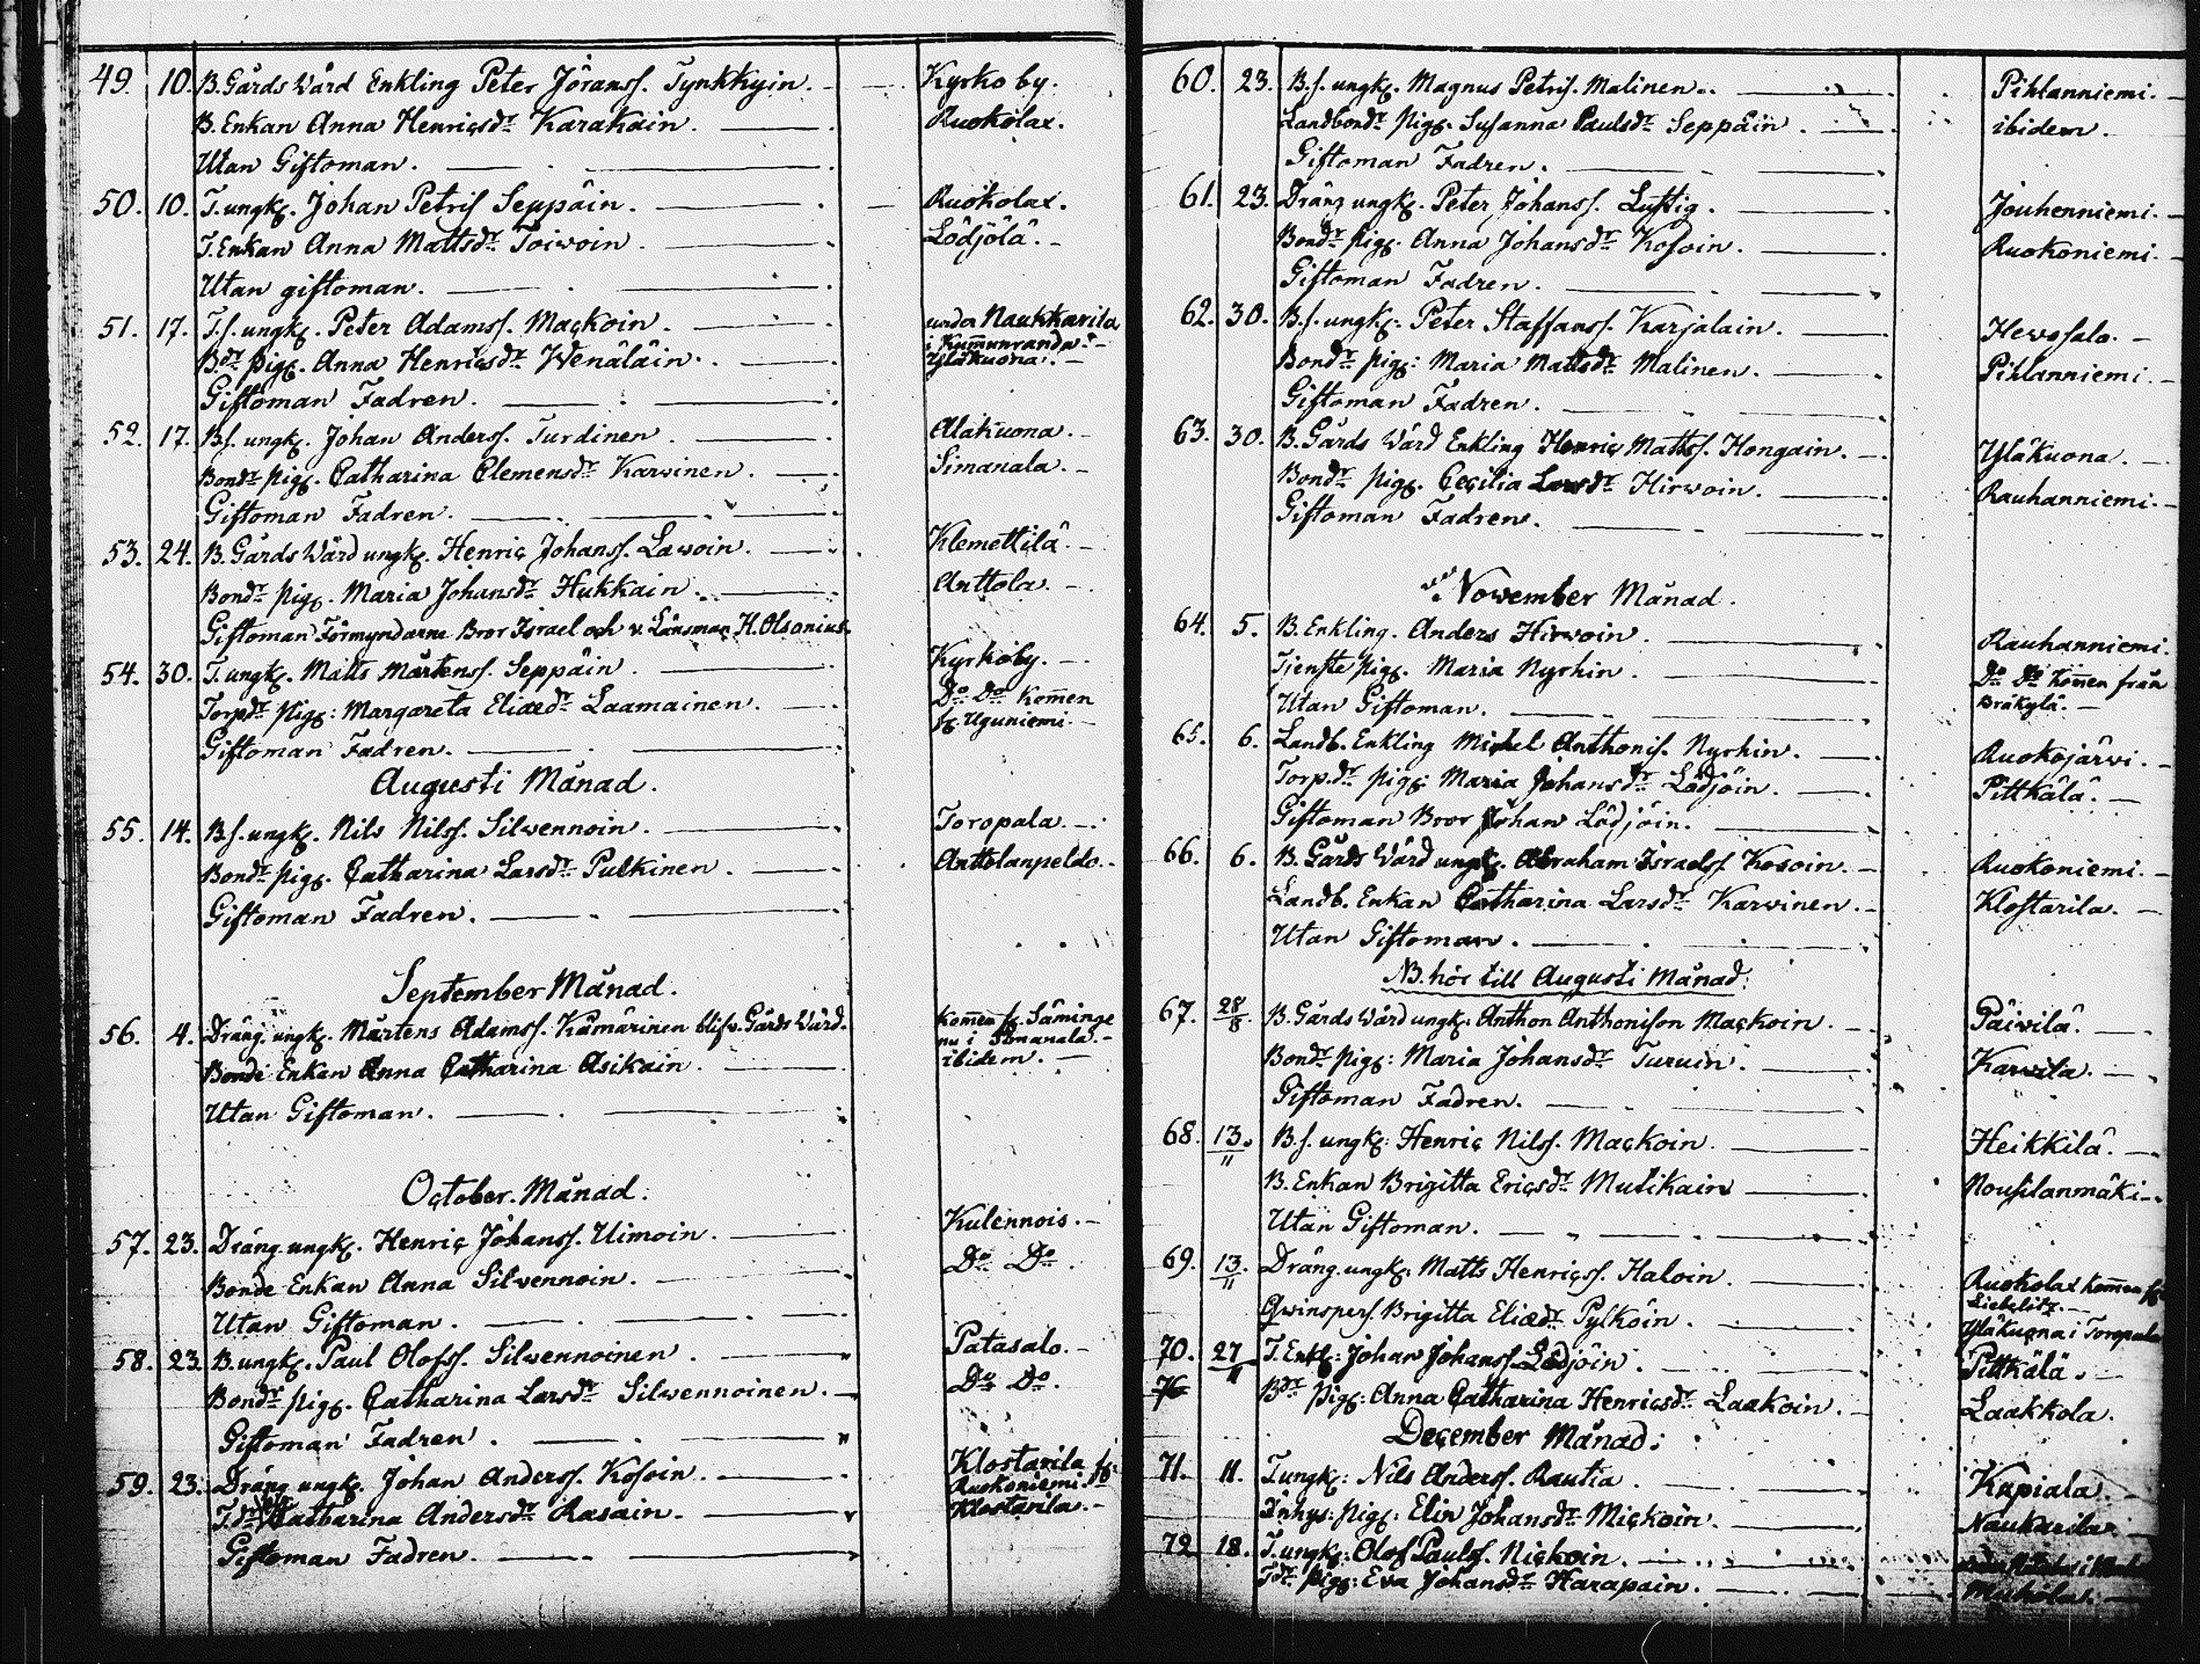 49. 10. B. Gårds Wärd Enkling Peter Jöranss. Tynkkyin. Kyrko by.
B. Enkan Anna Henricsdr Karakain. Ruokolax.
Utan Giftoman.
50. 10. T. ungk. Johan Petris Seppäin. Ruokolax.
T. Enkan Anna Mattsdr Toiwoin. Lödjölä.
Utan giftoman.
51. 17. T.s. ungk. Peter Adamss. Mackoin. under Naukkarila
i Kummunranda.
Bdr pig. Anna Henricsdr Wenäläin. Yläkuona.
Giftoman Fadren.
52. 17. B.s. ungk. Johan Anderss. Turdinen. Alakuona.
Bondr pig. Catharina Clemensdr Karwinen. Simanala.
Giftoman Fadren.
53. 24. B. Gårds Wärd ungk. Henric Johanss. Lawoin. Klemettilä.
Bondr pig. Maria Johansdr Hukkain. Anttola.
Giftoman Förmyndarne Bror Israel och v. Länsman H. Olsonius.
54. 30. T. ungk. Matts Mårtenss. Seppäin. Kyrkoby.
Torpdr pig: Margareta Eliædr Laamainen. Do Do kommen
fr. Uguniemi.
Giftoman Fadren.
Augusti Månad.
55. 14. B.s. ungk. Nils Nilss. Silwennoin. Toropala.
Bondr pig. Catharina Larsdr Pulkinen. Anttolanpeldo.
Giftoman Fadren.
September Månad.
56. 4. Dräng. ungk. Mårtens Adamss. Kämärinen blifv. Gårds Wärd. kommen fr. Säminge
nu i Simanala.
Bonde Enkan Anna Catharina Asikain. ibidem.
Utan Giftoman.
October Månad.
57. 23. Dräng ungk. Henric Johanss. Uimoin. Kulennois.
Bonde Enkan Anna Silwennoin. Do Do.
Utan Giftoman.
58. 23. B. ungk. Paul Olofss. Silwennoinen. Patasalo.
Bondr pig. Catharina Larsdr Silwennoinen. Do Do.
Giftoman Fadren.
59. 23. Dräng ungk. Johan Anderss. Kosoin. Klostarila fr.
Ruokoniemi.
Tdr Catharina Andersdr Rasain. Klostarila.
Giftoman Fadren.
60. 23. B.s. ungk. Magnus Petris. Malinen. Pihlanniemi.
Landbondr pig. Susanna Paulsdr Seppäin. ibidem.
Giftoman Fadren.
61. 23. Dräng ungk. Peter Johanss. Lustig. Jouhenniemi.
Bondr pig. Anna Johansdr Kosoin. Ruokoniemi.
Giftoman Fadren.
62. 30. B.s. ungk: Peter Staffanss. Karjalain. Hewosalo.
Bondr pig: Maria Mattsdr Malinen. Pihlanniemi.
Giftoman Fadren.
63. 30. B. Gårds Wärd Enkling Henric Mattss. Hongain. Yläkuona.
Bondr pig. Cecilia Larsdr Hirwoin. Rauhanniemi.
Giftoman Fadren.
November Månad.
64. 5. B. Enkling. Anders Hirwoin. Rauhanniemi.
Tjenste pig. Maria Nyrhin. Do Do kommen från
Bräkylä.
Utan Giftoman.
65. 6. Landb. Enkling Michel Anthonis. Nyrhin. Ruokojärwi.
Torp.dr pig: Maria Johansdr Lödjöin. Pittkälä.
Giftoman Bror Johan Lödjöin.
66. 6. B. Gårds Wärd ungk. Abraham Israelss Kosoin. Ruokoniemi.
Landb. Enkan Catharina Larsdr Karwinen. Klostarila.
Utan Giftoman.
NB. hör till Augusti Månad.
67. 28/8. B. Gårds Wärd ungk: Anthon Anthonison Mackoin. Päiwilä.
Bondr pig: Maria Johansdr Turuin. Karwila.
Giftoman Fadren.
68. 13/11. B.s. ungk: Henric Nilss. Mackoin. Heikkilä.
B. Enkan Brigitta Ericsdr Mutikain Nousilanmäki
Utan Giftoman.
69. 13/11. Dräng. ungk: Matts Henricss. Haloin. Ruokolax kommen fr.
Liebelitz.
Qwinspers. Brigitta Eliædr Pylköin. Yläkuona i Toropala
70. 27/11 T. Enkl: Johan Johanss. Lödjöin. Pittkälä.
76 Bdr pig: Anna Catharina Henricsdr Laakoin. Laakkola.
December Månad:
71. 11. T ungk: Nils Anderss. Rautia. Kupiala
Inhys: pig: Elin Johansdr Mickoin. Naukarila
72 18. T. ungk: Olof Paulss. Nickoin.
Tdr. pig: Eva Johansdr Harapain.